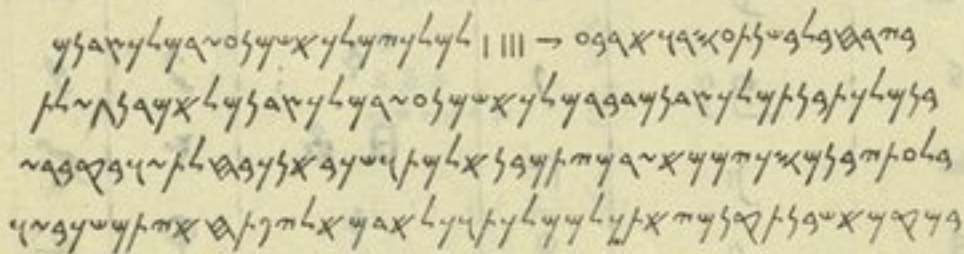 𐤁𐤉𐤓𐤇𐤁𐤋𐤁𐤔𐤍𐤕𐤏𐤎𐤓𐤅𐤀𐤓𐤁𐤏 𐤗 𐤛 𐤖 𐤋𐤌𐤋𐤊𐤉𐤌𐤋𐤊𐤀𐤔𐤌𐤍𐤏𐤆𐤓𐤌𐤋𐤊𐤑𐤃𐤍𐤌
𐤁𐤍𐤌𐤋𐤊𐤕𐤁𐤍𐤕𐤌𐤋𐤊𐤑𐤃𐤍𐤌𐤃𐤁𐤓𐤌𐤋𐤊𐤀𐤔𐤌𐤍𐤏𐤆𐤓𐤌𐤋𐤊𐤑𐤃𐤍𐤌𐤋𐤀𐤌𐤓𐤍𐤂𐤆𐤋𐤕
𐤁𐤋𐤏𐤕𐤉𐤁𐤍𐤌𐤎𐤊𐤉𐤌𐤌𐤀𐤆𐤓𐤌𐤉𐤕𐤌𐤁𐤍𐤀𐤋𐤌𐤕𐤅𐤔𐤊𐤁𐤀𐤍𐤊𐤁𐤇𐤋𐤕𐤆𐤅𐤁𐤒𐤁𐤓𐤆
𐤁𐤌𐤒𐤌𐤀𐤔𐤁𐤍𐤕𐤒𐤍𐤌𐤉𐤀𐤕𐤊𐤋𐤌𐤌𐤋𐤊𐤕𐤅𐤊𐤋𐤀𐤃𐤌𐤀𐤋𐤉𐤐𐤕𐤇𐤀𐤉𐤕𐤌𐤔𐤊𐤁𐤆𐤅